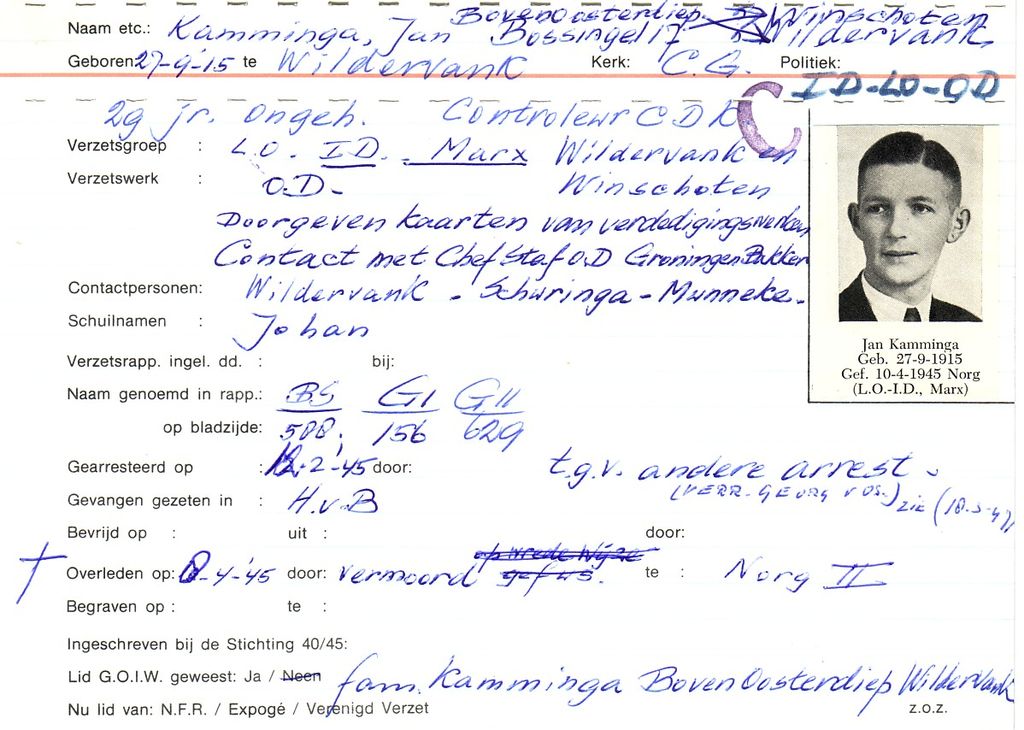 BovenOosterdiep Winschoten
Naam etc.: Kamminga, Jan Bossingel 17 Wildervank
Geboren: 27-9-15 te Wildervank Kerk: C.G. Politiek:
I D - LO - OD
29 jr. Ongeh. Controleur C D K C
Verzetsgroep : L.O. I.D. - Marx Wildervank en
Verzetswerk : O.D- Winschoten
Doorgeven kaarten van verdedigingswerken
Contact met Chef Staf O.D Groningen Bakker
Contactpersonen: Wildervank - Schuringa - Munneke -
Schuilnamen : Johan
Verzetsrapp. ingel. dd. : bij:
Naam genoemd in rapp.: BS GI GII
op bladzijde: 508, 156 629
Gearresteerd op : 12-2-'45 door: t.g.v. andere arrest -
(VERR. GEORG V OS.) zie (18-3-47)
Gevangen gezeten in : H.v.B
Bevrijd op : uit : door:
op wrede wijze
Overleden op: -4-'45 door: vermoord gefus. te : Norg II
Begraven op : te :
Ingeschreven bij de Stichting 40/45:
Lid G.O.I.W. geweest: Ja / Neen fam. Kamminga BovenOosterdiep Wildervank
Nu lid van: N.F.R. / Expogé / Verenigd Verzet z.o.z.
Jan Kamminga
Geb. 27-9-1915
Gef. 10-4-1945 Norg
(L.O.-I.D., Marx)